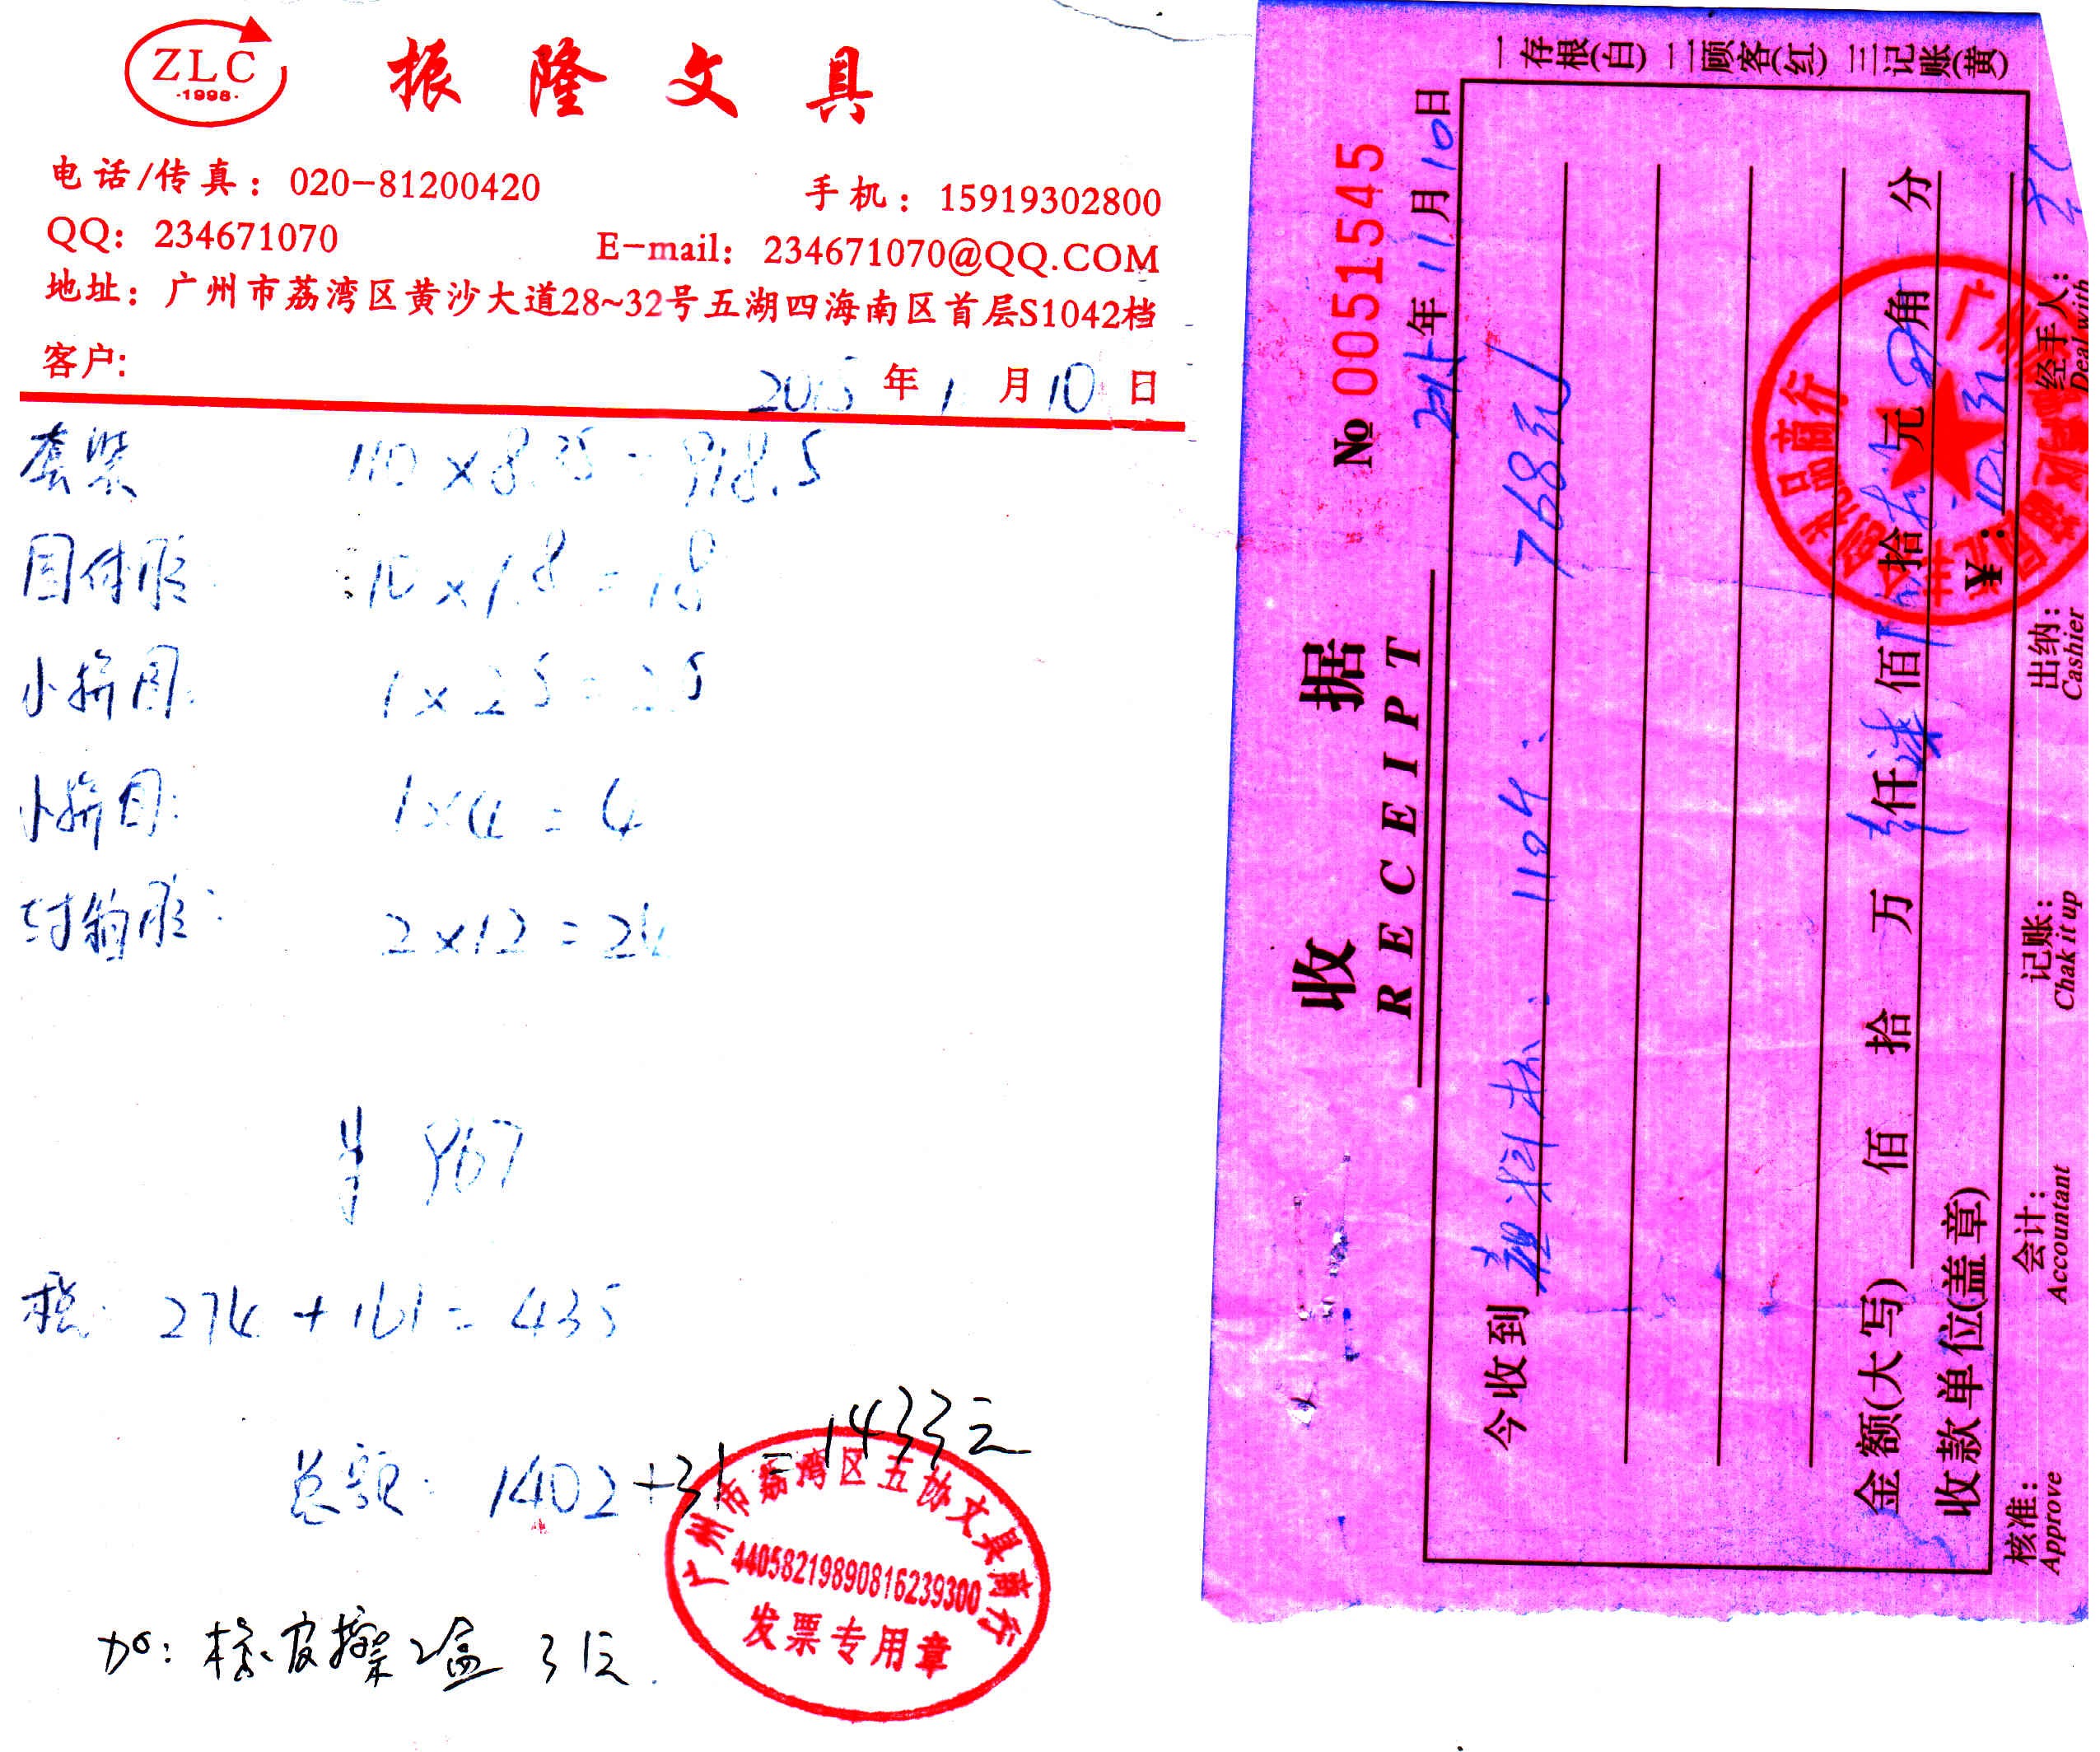 ZLC
·1998·
振隆文具
电话/传真：020-81200420 手机：15919302800
QQ：234671070 E-mail：234671070@QQ.COM
地址：广州市荔湾区黄沙大道28~32号五湖四海南区首层S1042档
客户:
2015年1月10日
套装 110×8.35=918.5
固体胶 :10×1.8=18
小拼图 1×2.5=2.5
小拼图: 1×4=4
2×12=24
¥ 967
274+161=435
总额: 1402+31=1433元
加: 橡皮擦2盒 31元.
广州市荔湾区五协文具商行
44058219890816239300
发票专用章
一存根(白) 二顾客(红) 三记账(黄)
收据
RECEIPT
№ 0051545
年11月10日
今收到 1104: 768元
金额(大写) 佰拾万仟佰拾元角分
收款单位(盖章) ¥:
核准: 会计: 记账: 出纳: 经手人:
Approve Accountant Chak it up Cashier Deal with